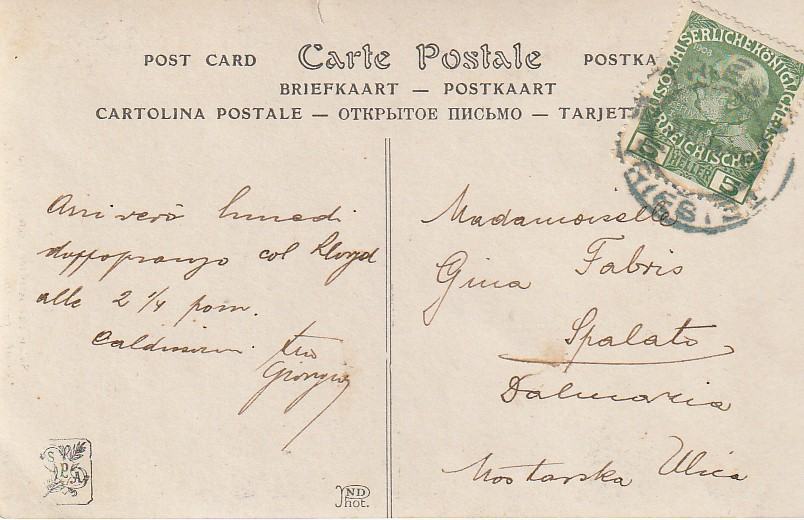 POST CARD Carte Postale POSTKA
BRIEFKAART — POSTKAART
CARTOLINA POSTALE — ОТКРЫТОЕ ПИСЬМО — TARJET
KAISERLICHE KÖNIGLICHE
1908
5 HELLER 5
TRIEST
Arriverò lunedì
doppopranzo col Lloyd
alle 2 1/4 pom.
tuo
Giorgio
Madamoiselle
Gina Fabris
Spalato
Dalmazia
Mostarska Ulica
ND
Phot.